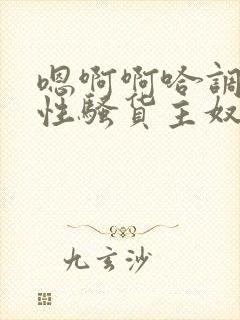 嗯啊啊哈調
性騷货主奴
九玄沙